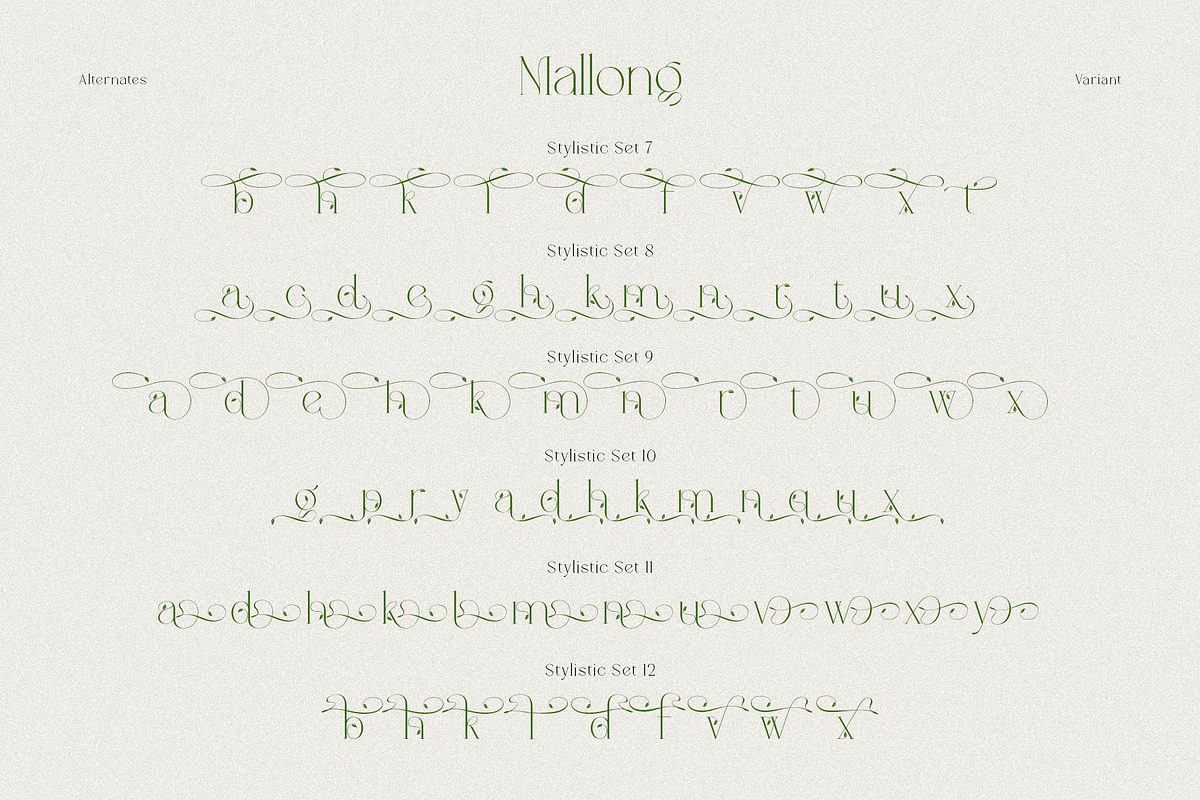 Alternates
Mallong
Variant
Stylistic Set 7
b h k l d f v w x t
Stylistic Set 8
a c d e g h k m n r t u x
Stylistic Set 9
a d e h k m n r t u w x
Stylistic Set 10
g p r y a d h k m n q u x
Stylistic Set 11
a d h k l m n u v w x y
Stylistic Set 12
b h k l d f v w x